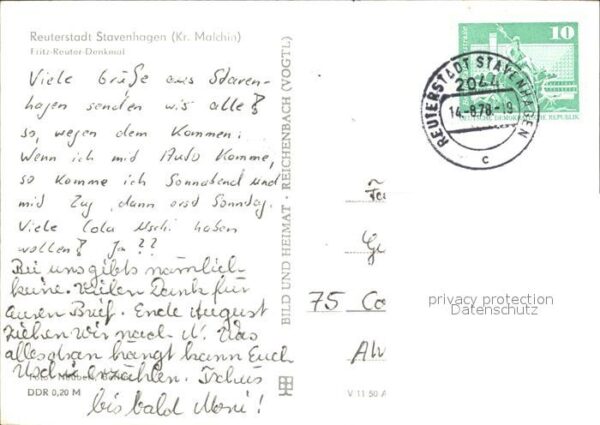 Reuterstadt Stavenhagen (Kr. Malchin)
Fritz-Reuter-Denkmal
Viele Grüße aus Staven-
hagen senden wir alle!
so, wegen dem Kommen:
Wenn ich mit Auto komme,
so komme ich Sonnabend und
mit Zug, dann erst Sonntag.
Viele Cola Uschi haben
wollen! Ja??
Bei uns gibts nämlich
keine. Vielen Dank für
Euren Brief. Ende August
ziehen wir nach N! Was
alles dran hängt kann Euch
Uschi erzählen. Tschüs
bis bald Moni!
DDR 0,20 M
BILD UND HEIMAT · REICHENBACH (VOGTL)
V 11 50 A
10
DEUTSCHE DEMOKRATISCHE REPUBLIK
REUTERSTADT STAVENHAGEN
2044
14.-8.78.-19
c
75 Co
privacy protection
Datenschutz